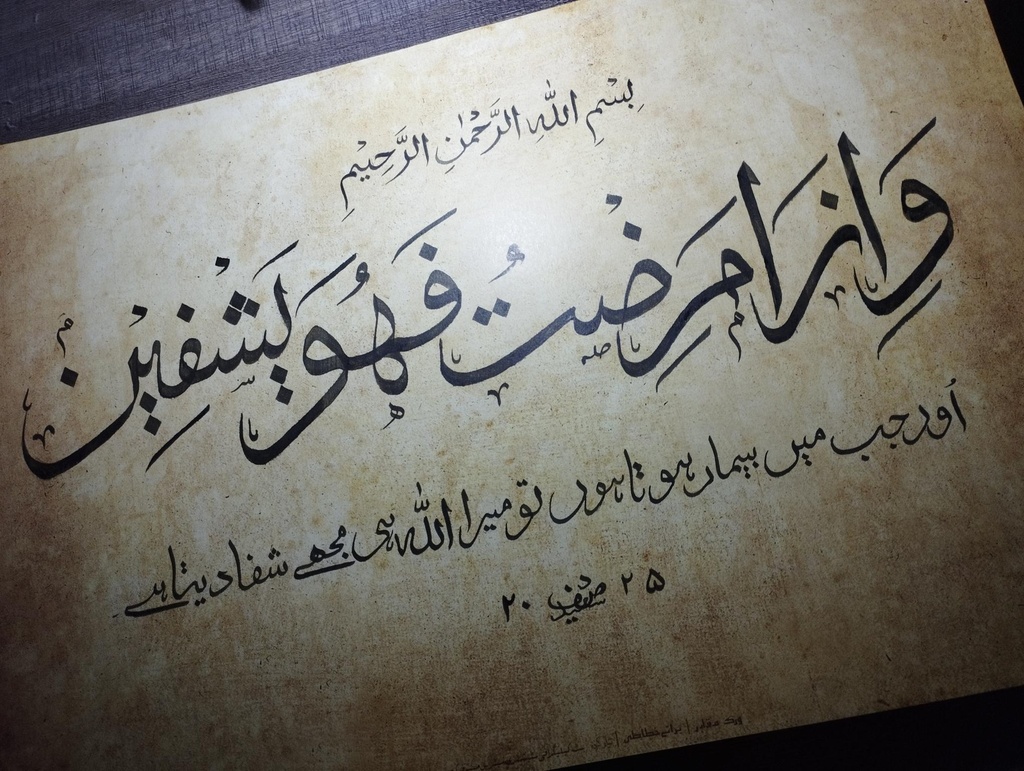 بِسْمِ اللهِ الرَّحْمٰنِ الرَّحِيْمِ
وَاِذَا مَرِضْتُ فَهُوَ يَشْفِيْنِ
اُور جب میں بیمار ہوتا ہوں تو میرا اللہ ہی مجھے شفا دیتا ہے
۲۵ ۲۰